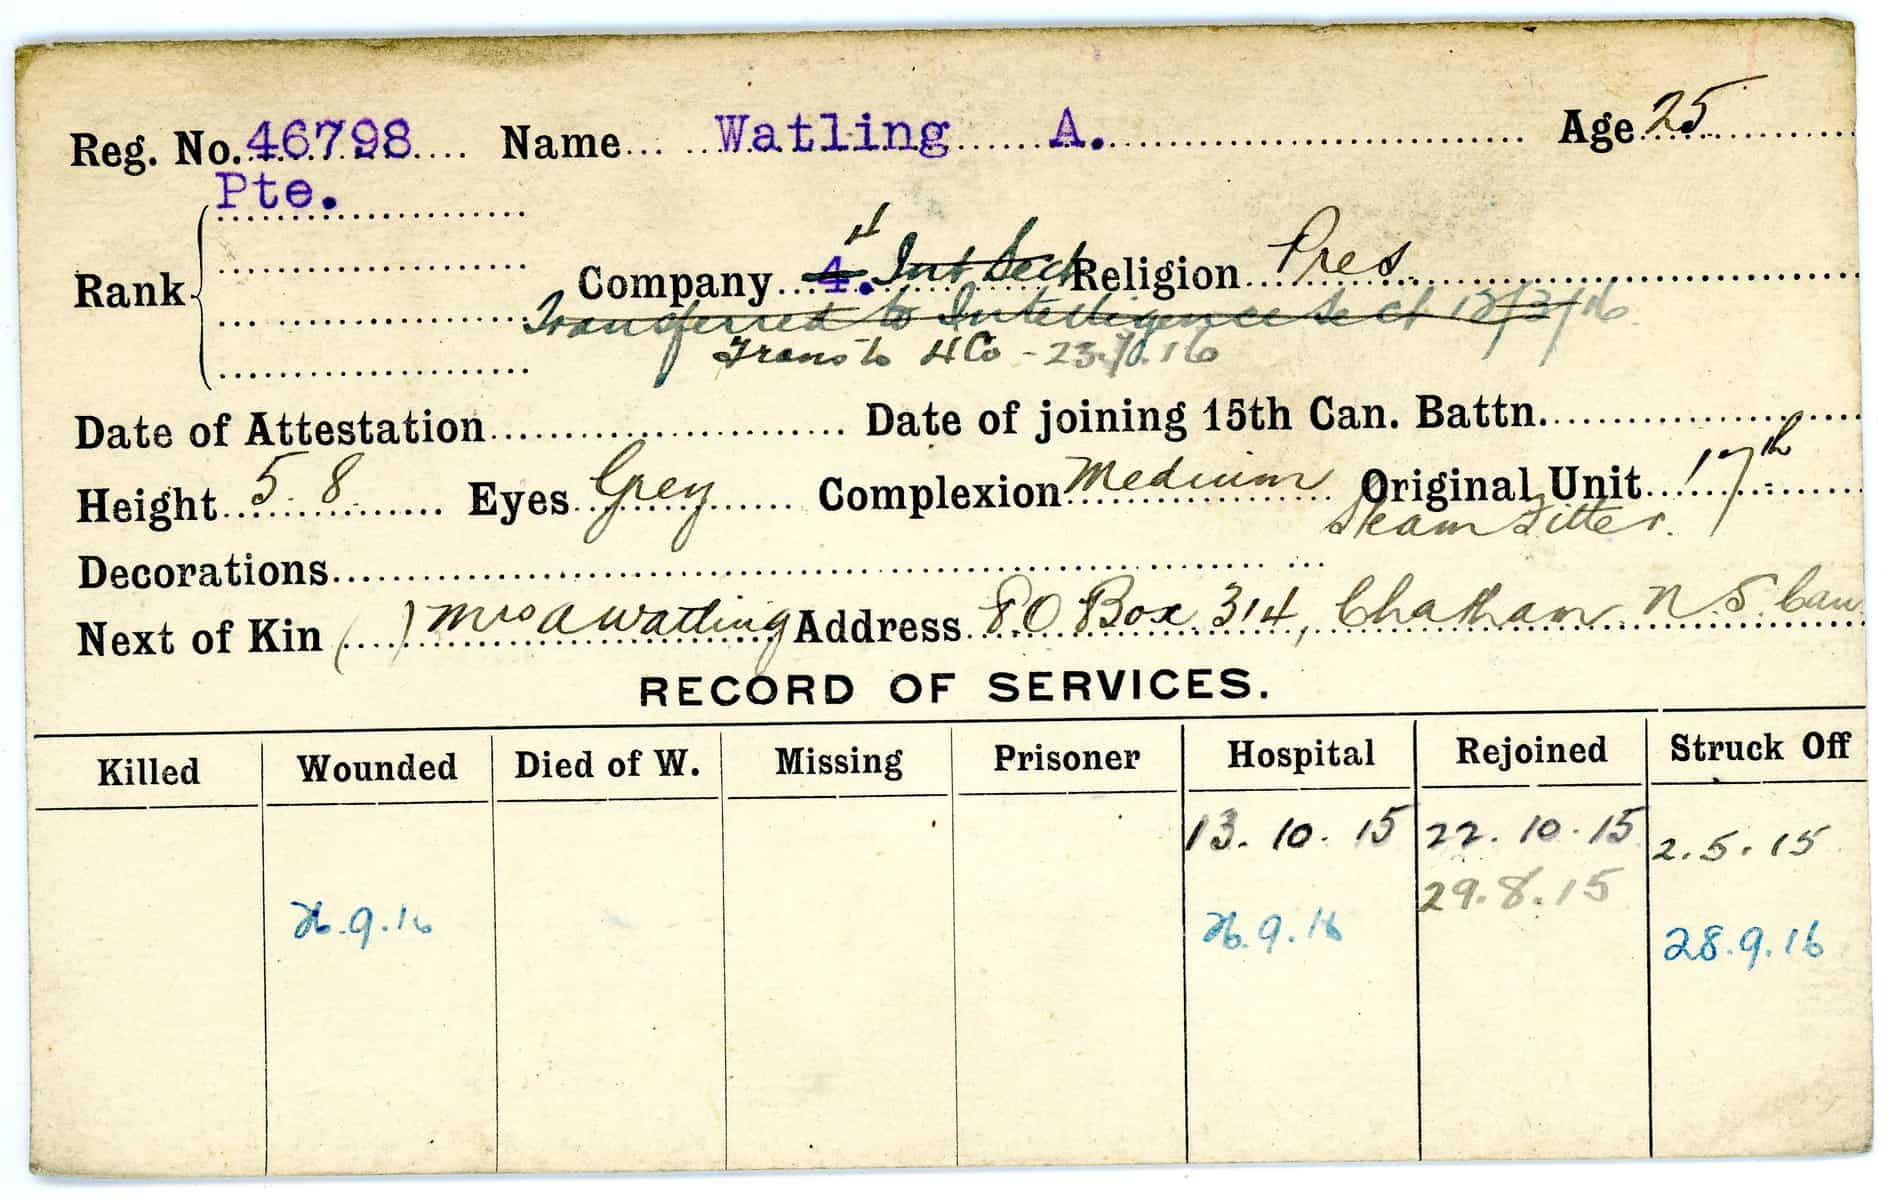 Reg. No. 46798 Name Watling A. Age 25
Pte.
4
Rank Company 4. Int Sect Religion Pres
Transferred to Intelligence Sect 13/3/16
Trans to 4 Co - 23.7.16
Date of Attestation Date of joining 15th Can. Battn.
Height 5. 8 Eyes Grey Complexion Medium Original Unit 17th
Steam Fitter.
Decorations
Next of Kin ( ) Mrs A Watling Address P O Box 314, Chatham. N. S. Can
RECORD OF SERVICES.
Killed Wounded Died of W. Missing Prisoner Hospital Rejoined Struck Off
13. 10. 15 22. 10. 15 2. 5. 15
29. 8. 15
26. 9. 16 26. 9. 16 28. 9. 16